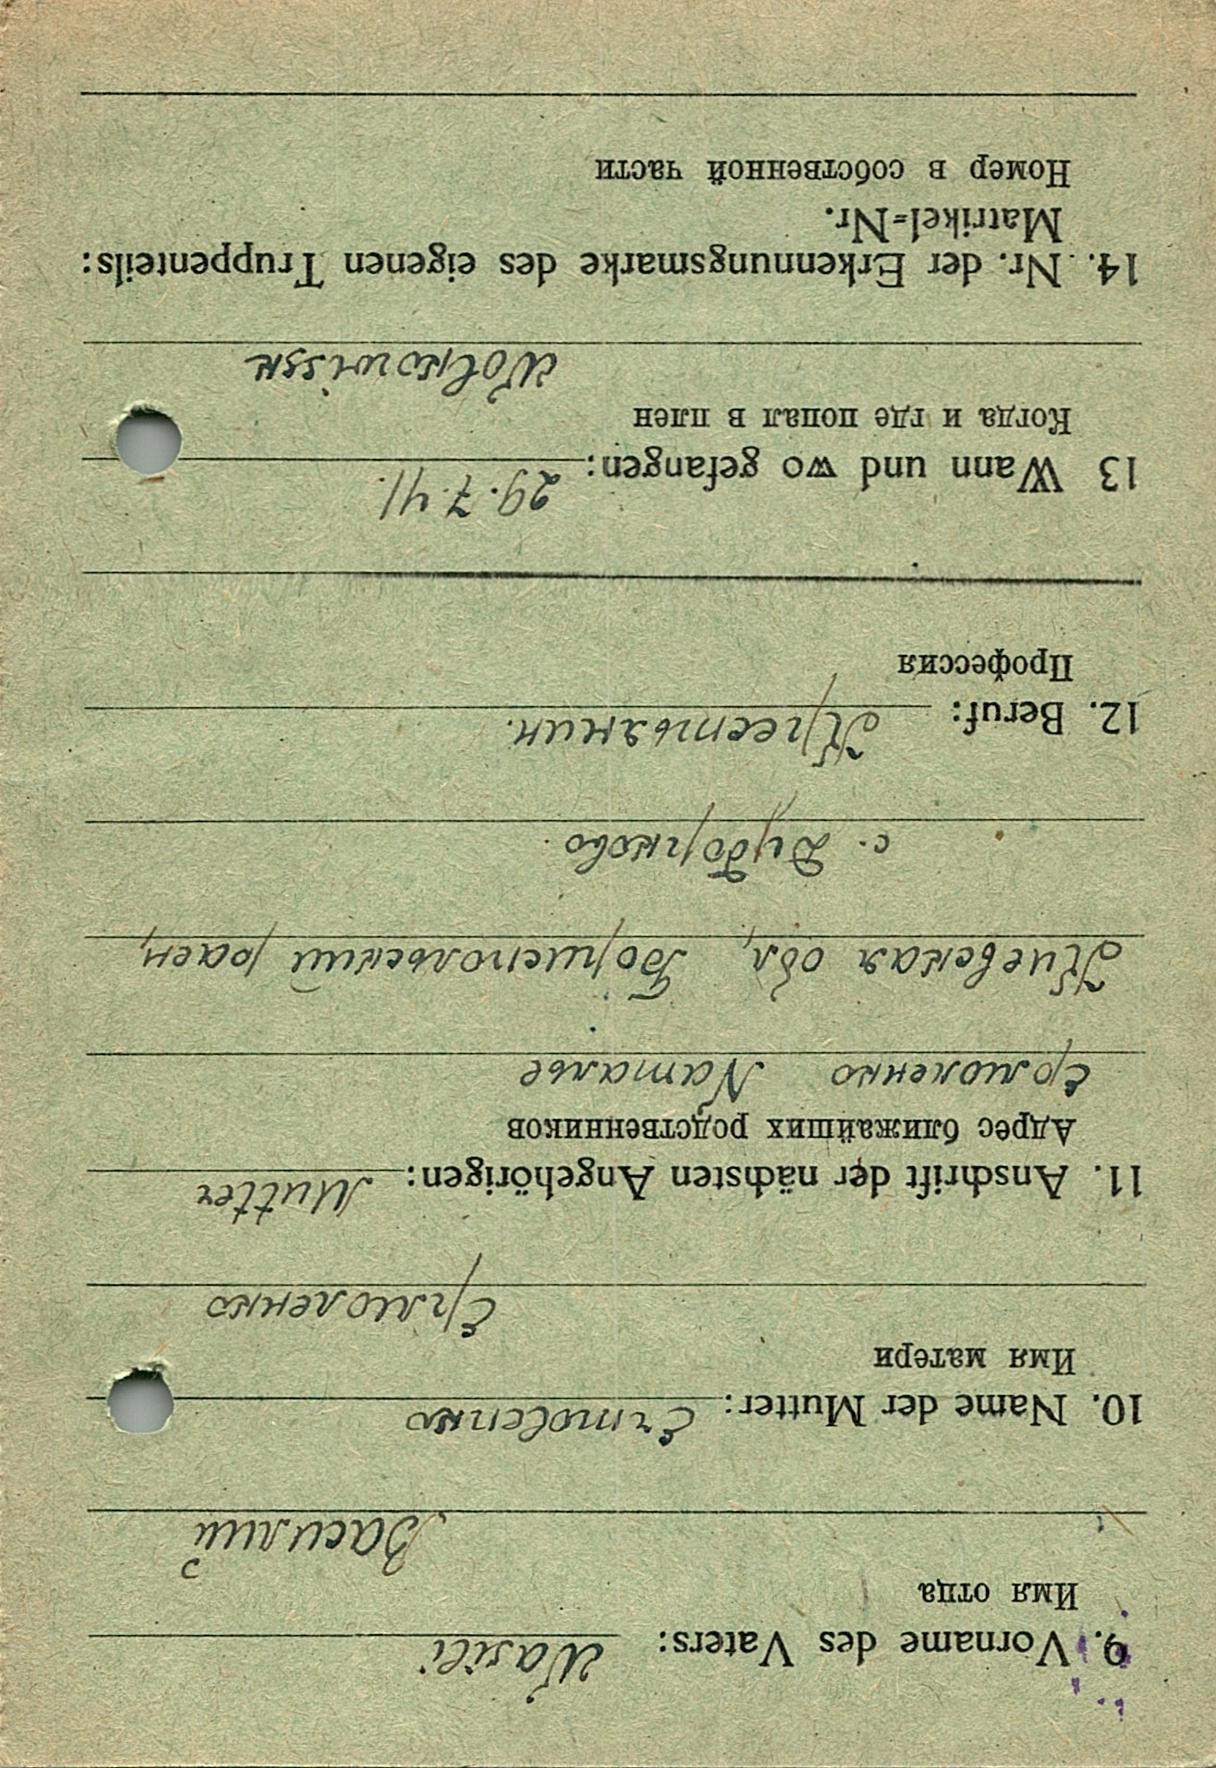 9. Vorname des Vaters: Wasili
Имя отца
Василий
10. Name der Mutter: Ermolenko
Имя матери
Ермоленко
11. Anschrift der nächsten Angehörigen: Mutter
Адрес ближайших родственников
Ермоленко Наталье
Киевская обл, Борисполський раен,
с. Дударково.
12. Beruf: Крестьянин.
Профессия
13 Wann und wo gefangen: 29.7.41.
Когда и где попал в плен
Wolkowissk
14. Nr. der Erkennungsmarke des eigenen Truppenteils:
Matrikel=Nr.
Номер в собственной части